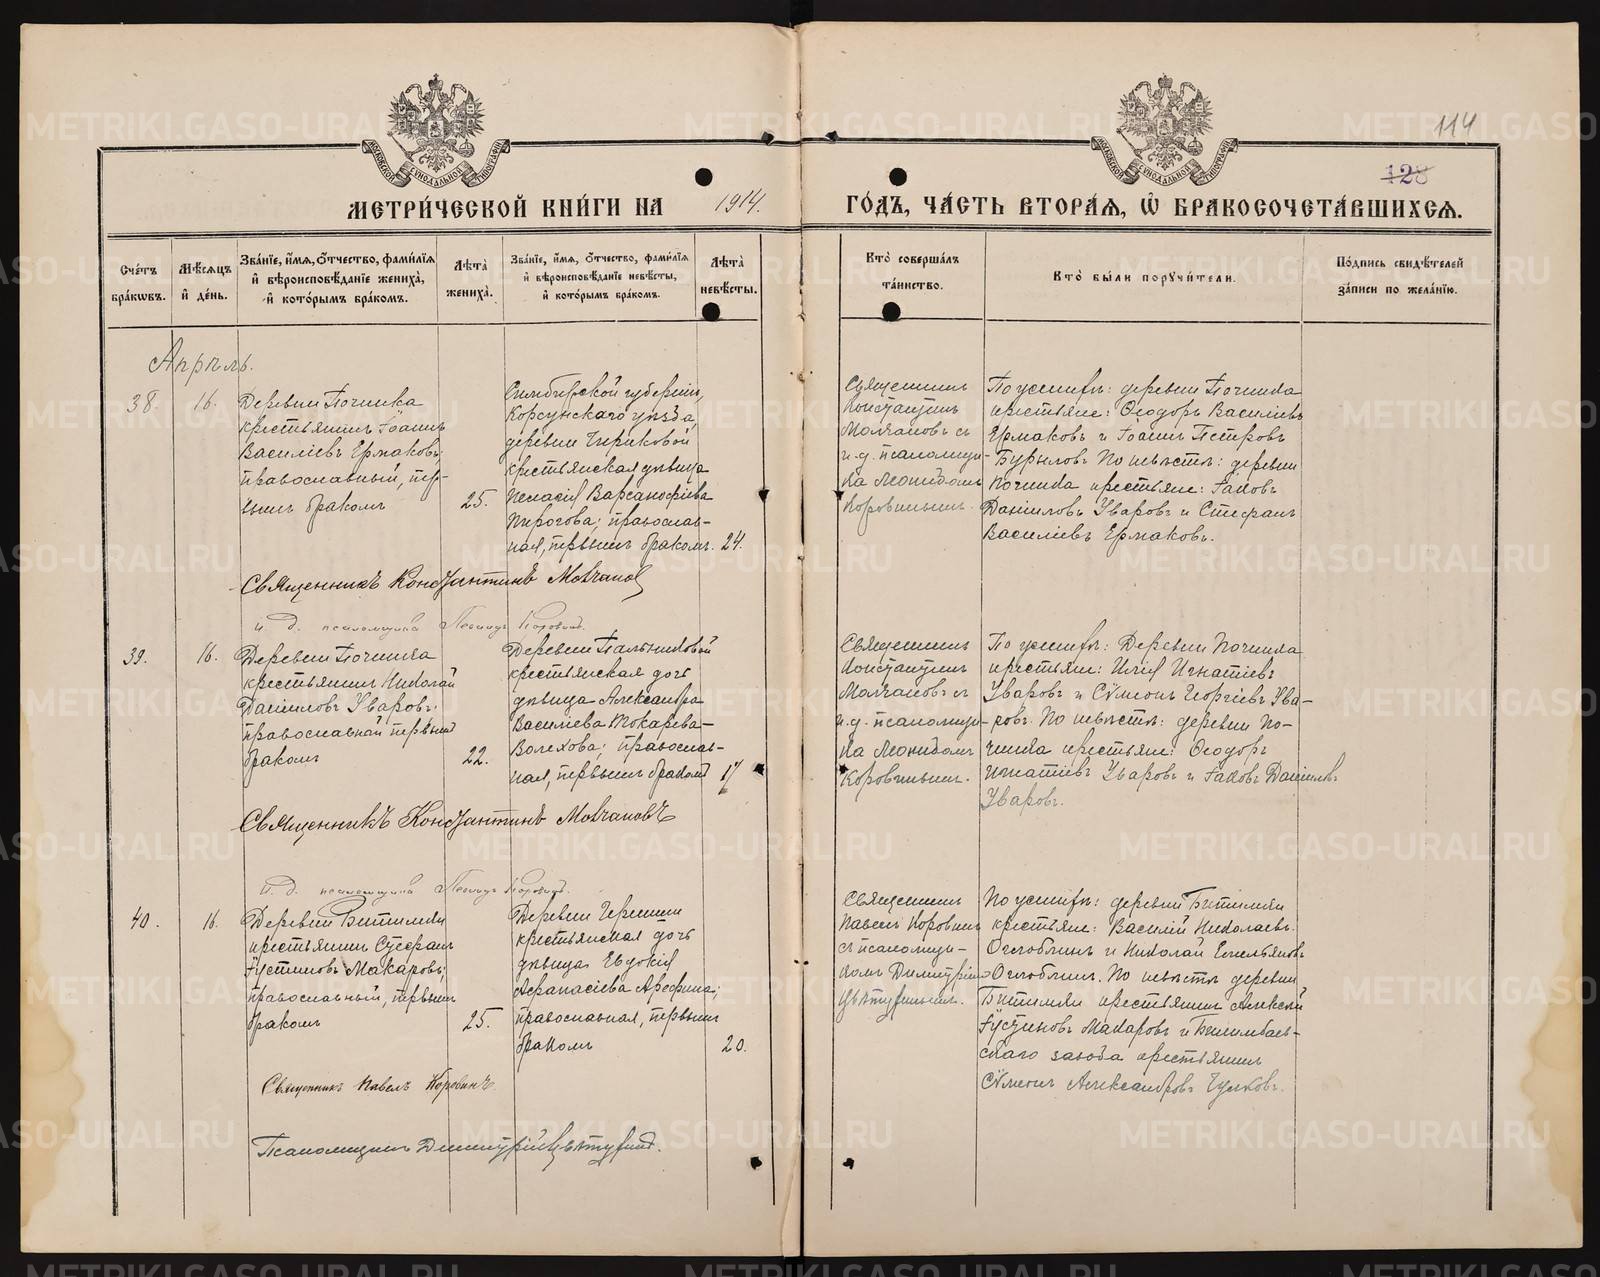 114
128
МОСКОВСКОЙ СѴНОДАЛЬНОЙ ТИПОГРАФІИ
МОСКОВСКОЙ СѴНОДАЛЬНОЙ ТИПОГРАФІИ
МЕТРИ́ЧЕСКОЙ КНИ́ГИ НА 1914. ГО́ДЪ, ЧА́СТЬ ВТОРА́Я, Ѡ БРАКОСОЧЕТА́ВШИХСЯ.
Сче́тъ бра́кѡвъ.
Мѣ́сяцъ и҆ де́нь.
Зва́нїе, и҆́мя, ѻ҆́тчество, фами́лїя
и҆ вѣроисповѣ́данїе жениха̀,
и҆ кото́рымъ бра́комъ.
Лѣ́та жениха̀.
Зва́нїе, и҆́мя, ѻ҆́тчество, фами́лїя
и҆ вѣроисповѣ́данїе невѣ́сты,
и҆ кото́рымъ бра́комъ.
Лѣ́та невѣ́сты.
Кто̀ соверша́лъ
та́инство.
Кто̀ бы́ли поручи́тели.
По́дпись свидѣ́телей
за́писи по жела́нїю.
Апрѣль.
38.
16.
Деревни Починка
крестьянинъ Іоаннъ
Василіевъ Ермаковъ,
православный, пер-
вымъ бракомъ
25.
Симбирской губерніи,
Корсунскаго уѣзда,
деревни Чириковой
крестьянская дѣвица
Пелагія Варсанофіева
Пирогова; православ-
ная, первымъ бракомъ.
24.
Священникъ
Константинъ
Молчановъ съ
и.д. псаломщи-
ка Леонидомъ
Коровинымъ.
По женихѣ: деревни Починка
крестьяне: Ѳеодоръ Василіевъ
Ермаковъ и Іоаннъ Петровъ
Бурыловъ По невѣстѣ: деревни
Починка крестьяне: Іаковъ
Даніиловъ Уваровъ и Стефанъ
Василіевъ Ермаковъ.
Священникъ Константинъ Молчановъ
и. д. псаломщика Леонидъ Коровинъ.
39.
16.
Деревни Починка
крестьянинъ Николай
Даніиловъ Уваровъ;
православный первымъ
бракомъ
22.
Деревни Пальниковой
крестьянская дочь
дѣвица Александра
Василіева Токарева-
Волехова; православ-
ная, первымъ бракомъ
17
Священникъ
Константинъ
Молчановъ съ
и.д. псаломщи-
ка Леонидомъ
Коровинымъ.
По женихѣ: Деревни Починка
крестьяне: Илія Игнатіевъ
Уваровъ и Сѵмеонъ Георгіевъ Ува-
ровъ. По невѣстѣ: деревни По-
чинка крестьяне: Ѳеодоръ
Игнатіевъ Уваровъ и Іаковъ Даніиловъ
Уваровъ.
Священникъ Константинъ Молчановъ
и. д. псаломщика Леонидъ Коровинъ.
40.
16.
Деревни Битимки
крестьянинъ Стефанъ
Іустиновъ Макаровъ;
православный, первымъ
бракомъ
25.
Деревни Черемши
крестьянская дочь
дѣвица Евдокія
Аѳанасіева Арефина;
православная, первымъ
бракомъ
20.
Священникъ
Павелъ Коровинъ
съ псаломщи-
комъ Димитріемъ
Цвѣтухинымъ.
По женихѣ: деревни Битимки
крестьяне: Василій Николаевъ
Оглоблинъ и Николай Емельяновъ
Оглоблинъ. По невѣстѣ деревни
Битимки крестьянинъ Алексѣй
Іустиновъ Макаровъ и Билимбаев-
скаго завода крестьянинъ
Сѵмеонъ Александровъ Чулковъ.
Священникъ Павелъ Коровинъ.
Псаломщикъ Димитрій Цвѣтухинъ.
METRIKI.GASO-URAL.RU